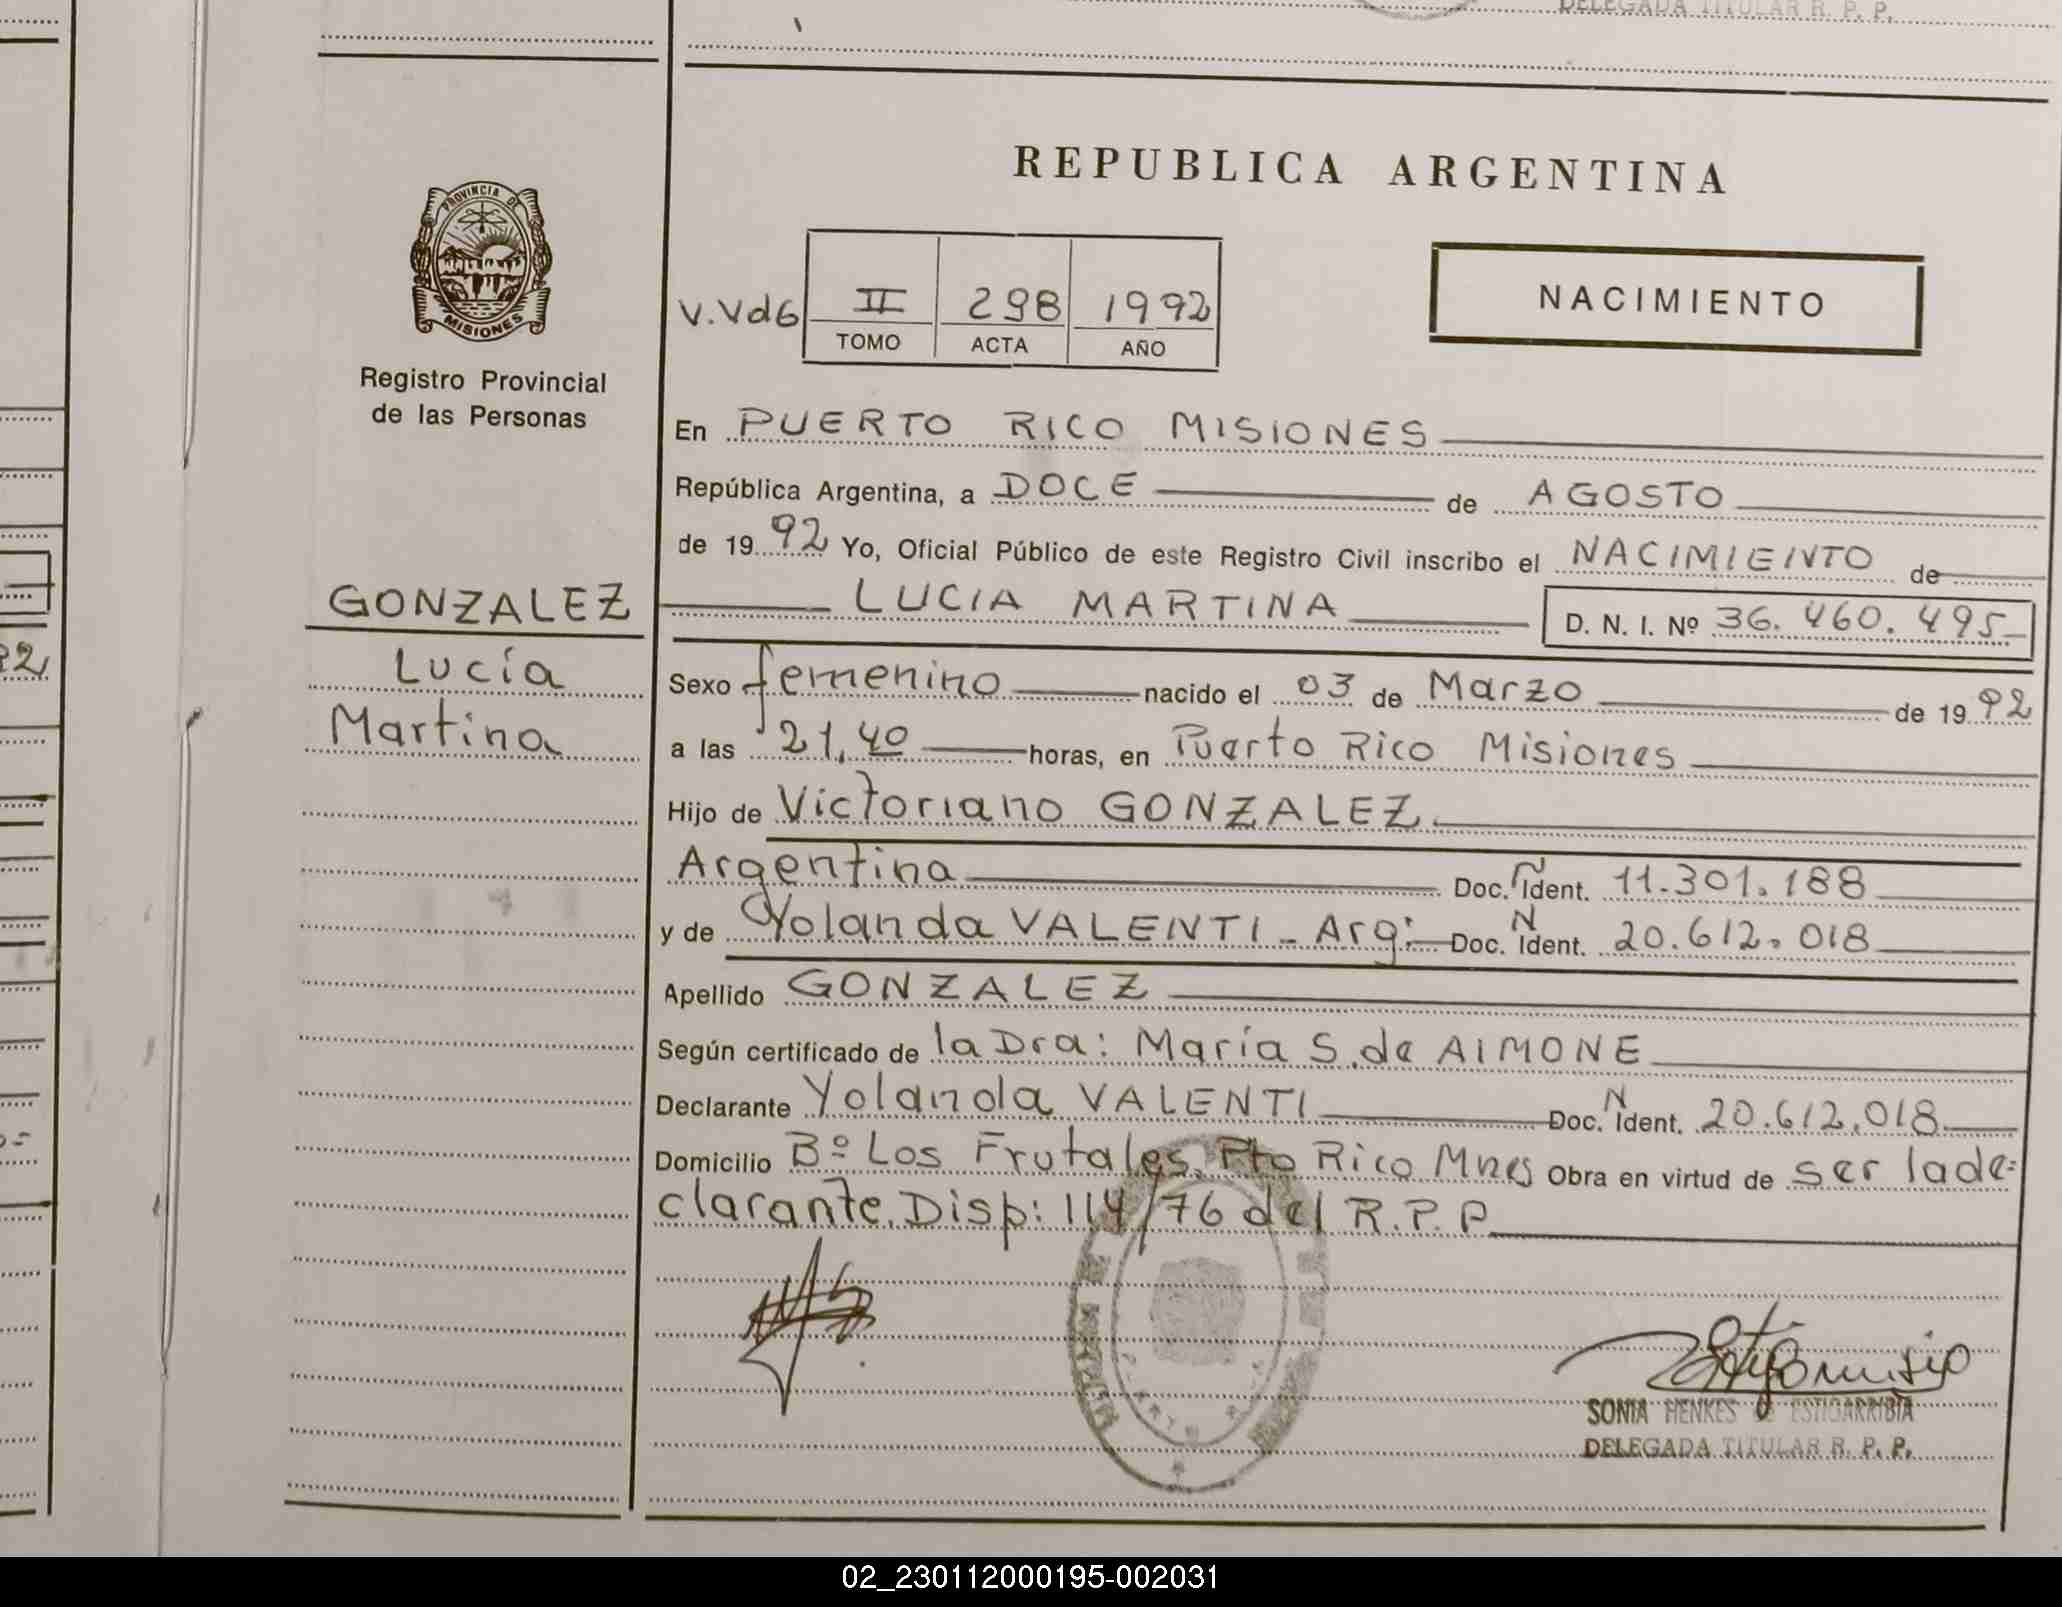 DELEGADA TITULAR R. P. P.
PROVINCIA DE
MISIONES
Registro Provincial
de las Personas
GONZALEZ
Lucía
Martina
REPUBLICA ARGENTINA
V.Vd6 II 298 1992
TOMO ACTA AÑO
NACIMIENTO
En PUERTO RICO MISIONES
República Argentina, a DOCE de AGOSTO
de 1992 Yo, Oficial Público de este Registro Civil inscribo el NACIMIENTO de
LUCIA MARTINA D. N. I. Nº 36.460.495
Sexo femenino nacido el 03 de Marzo de 1992
a las 21,40 horas, en Puerto Rico Misiones
Hijo de Victoriano GONZALEZ
Argentina Doc. Ñ Ident. 11.301.188
y de Yolanda VALENTI - Arg: Doc. N Ident. 20.612.018
Apellido GONZALEZ
Según certificado de la Dra: María S. de AIMONE
Declarante Yolanda VALENTI Doc. N Ident. 20.612.018
Domicilio Bº Los Frutales, Pto Rico Mnes Obra en virtud de ser la de=
clarante. Disp: 114/76 del R.P.P
SONIA HENKES de ESTIGARRIBIA
DELEGADA TITULAR R. P. P.
22
02_230112000195-002031